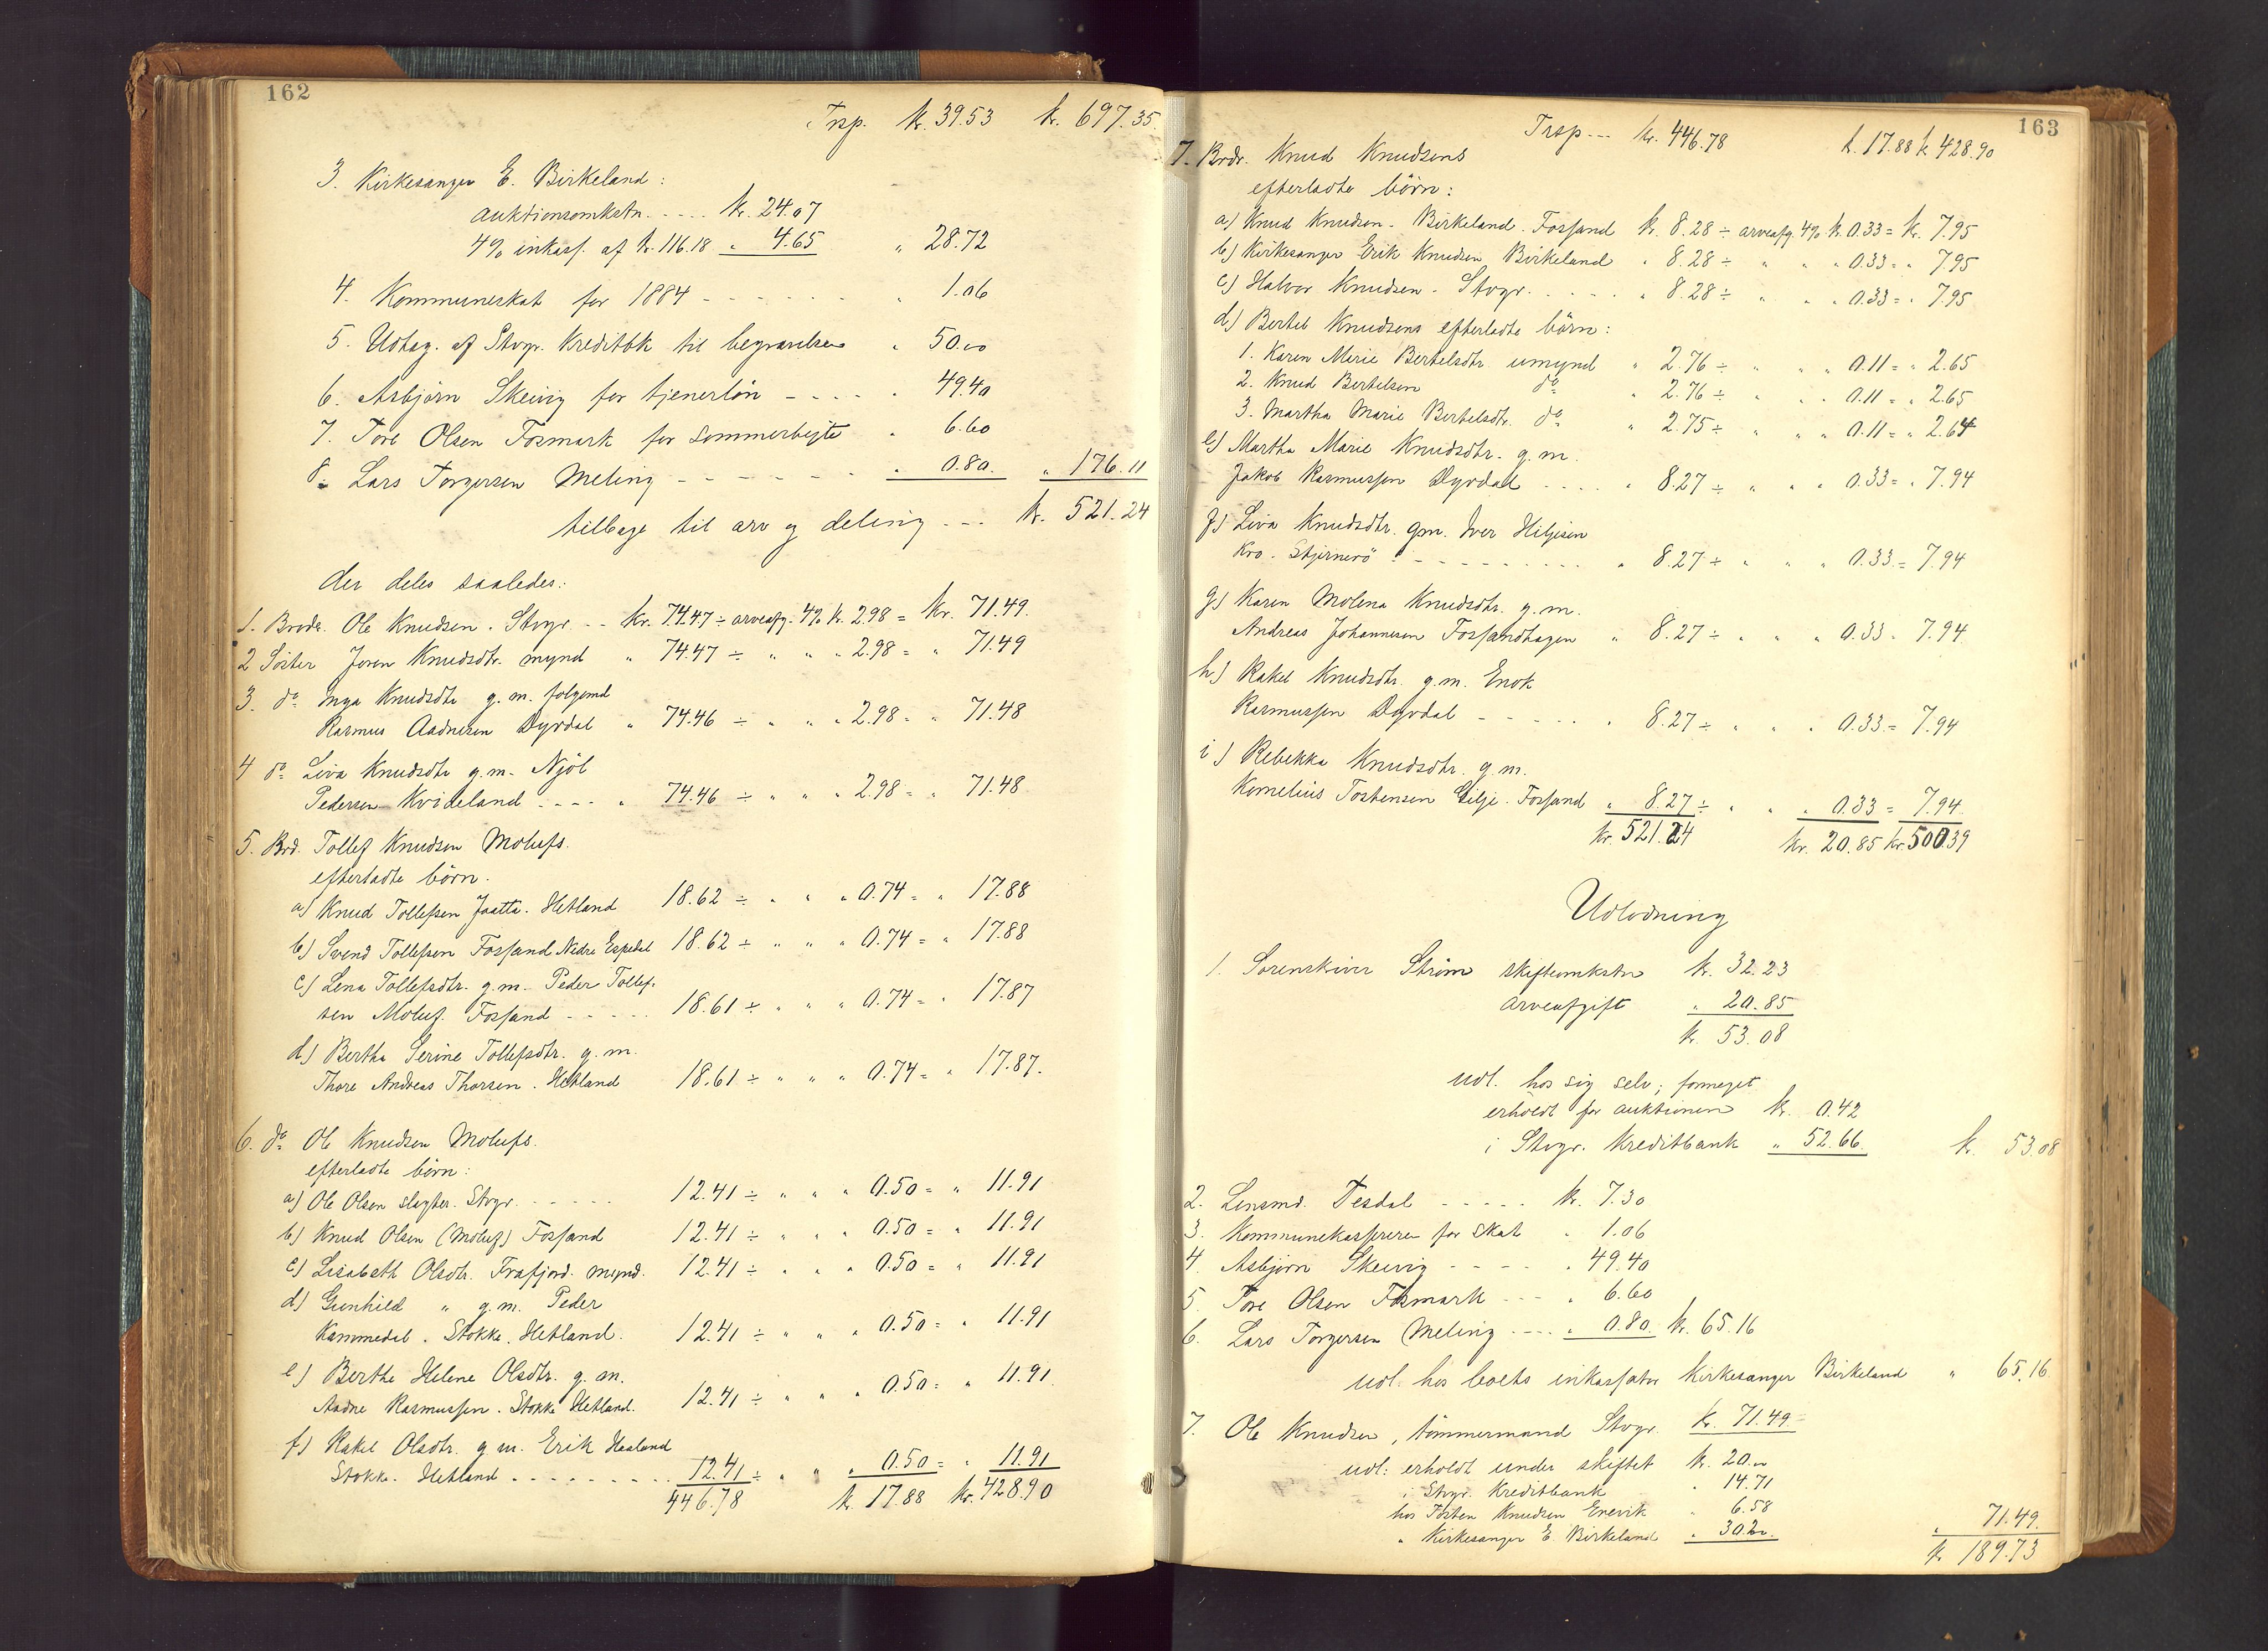 162
Trsp. kr. 39.53 kr. 697.35.
3. Kirkesanger E. Birkeland:
auktionsomkstn. .... kr. 24.07
4% inkass. af kr. 116.18 " 4.65 " 28.72
4. Kommuneskat for 1884 - - - - - - " 1.06
5. Udtag. af Stvgr. Kreditbk til begravelsen " 50.00
6. Asbjørn Skeivig for tjenerløn - - - - " 49.40
7. Tore Olsen Fosmark for sommerbejte " 6.60
8. Lars Torgersen Meling - - - - - - " 0.80. " 176.11
tilbage til arv og deling ... kr. 521.24
der deles saaledes:
1. Broder Ole Knudsen. Stvgr. -- kr. 74.47 ÷ arveafg. 4% kr. 2.98 = kr. 71.49.
2 Søster Joren Knudsdtr. mynd " 74.47 ÷ " " " 2.98 = " 71.49
3. do Inga Knudsdtr g.m. følgemd
Rasmus Aadnesen Dyrdal " 74.46 ÷ " " " 2.98 = " 71.48
4 do Liva Knudsdtr g.m. Njøl
Pedersen Kvideland .... " 74.46 ÷ " " " 2.98 = " 71.48
5. Brd. Tollef Knudsen Molufs.
efterladte børn.
a) Knud Tollefsen Jaatta. Hetland 18.62 ÷ " " " 0.74 = " 17.88
b) Svend Tollefsen Fossand Nedre Espedal 18.62 ÷ " " " 0.74 = " 17.88
c) Lena Tollefsdtr. g.m. Peder Tollef-
sen Moluf. Fossand - - - - - 18.61 ÷ " " " 0.74 = " 17.87
d) Bertha Serine Tollefsdtr. g.m.
Thore Andreas Thorsen. Hetland 18.61 ÷ " " " 0.74 = " 17.87.
6. do Ole Knudsen Molufs.
efterladte børn:
a) Ole Olsen slagter. Stvgr. - - - - - 12.41 ÷ " " " 0.50 = " 11.91
b) Knud Olsen (Moluf) Fossand 12.41 ÷ " " " 0.50 = " 11.91
c) Lisabeth Olsdtr. Frafjord. mynd. 12.41 ÷ " " " 0.50 = " 11.91
d) Gunhild " g.m. Peder
Kammedal. Stokke. Hetland. 12.41 ÷ " " " 0.50 = " 11.91
e) Berthe Helene Olsdtr. g.m.
Aadne Rasmussen. Stokke Hetland. 12.41 ÷ " " " 0.50 = " 11.91.
f) Rakel Olsdtr. g m. Erik Hesland
Stokke. Hetland . . . . . . . . . 12.41 ÷ " " " 0.50 = " 11.91
446.78 kr. 17.88 kr. 428.90
163
Trsp... kr. 446.78 k. 17.88 k. 428.90
7. Brdr. Knud Knudsens
efterladte børn:
a) Knud Knudsen. Birkeland. Fossand kr. 8.28 ÷ arveafg. 4% kr. 0.33 = kr. 7.95
b) Kirkesanger Erik Knudsen Birkeland " 8.28 ÷ " " " 0.33 = " 7.95
c) Halvor Knudsen. Stvgr. . . . . " 8.28 ÷ " " " 0.33 = " 7.95
d) Bertel Knudsens efterladte børn:
1. Karen Marie Bertelsdtr. umynd " 2.76 ÷ " " " 0.11 = " 2.65
2. Knud Bertelsen do " 2.76 ÷ " " " 0.11 = " 2.65
3. Martha Marie Bertelsdtr. do " 2.75 ÷ " " " 0.11 = " 2.64
e) Martha Marie Knudsdtr. g.m.
Jakob Rasmussen Dyrdal .... " 8.27 ÷ " " " 0.33 = " 7.94
f) Liva Knudsdtr. gm. Iver Hiljesen
Kro. Stjernerö . - - - - - - - - " 8.27 ÷ " " " 0.33 = 7.94
g) Karen Molena Knudsdtr. g.m.
Andreas Johannesen Fossandhagen " 8.27 ÷ " " " 0.33 = 7.94
h) Rakel Knudsdtr. g.m. Enok
Rasmussen Dyrdal - - - - - " 8.27 ÷ " " " 0.33 = 7.94
i) Rebekka Knudsdtr. g.m.
Kornelius Tostensen Gilje. Fossand " 8.27 ÷ " " " 0.33 = 7.94.
kr. 521.24 kr. 20.85 kr. 500.39
Udlodning
1. Sorenskiver Strøm skifteomkstn kr. 32.23
arveafgift " 20.85
k. 53.08
udl. hos sig selv; formeget
erholdt for auktionen kr. 0.42
i Stvgr. Kreditbank " 52.66. k. 53.08
2. Lensmd. Tesdal - - - - - kr. 7.30
3. Kommunekassereren for skat " 1.06
4. Asbjørn Skeivig - - - - " 49.40
5. Tore Olsen Fosmark - - - " 6.60
6. Lars Torgersen Meling .... " 0.80. kr. 65.16
udl. hos boets inkassator Kirkesanger Birkeland " 65.16
7. Ole Knudsen, tømmermand Stvgr. kr. 71.49
udl: erholdt under skiftet kr. 20.00
i Stvgr. Kreditbank " 14.71
hos Tosten Knudsen Erevik " 6.58
" Kirkesanger E. Birkeland " 30.20. " 71.49.
k. 189.73